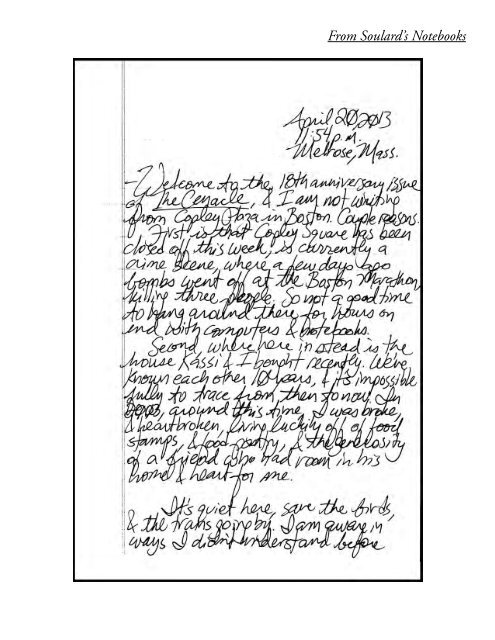 From Soulard's Notebooks
April 20, 2013
11:54 p.m.
Melrose, Mass.
-Welcome to the 18th anniversary issue
of The Cenacle, & I am not writing
from Copley Plaza in Boston. Couple reasons.
First is that Copley Square has been
closed off this week, is currently a
crime scene, where a few days ago
bombs went off at the Boston Marathon,
killing three people. So not a good time
to hang around there for hours on
end with computers & notebooks.
Second, where here in stead is the
house Kassi & I bought recently. We've
known each other 10 years, & it's impossible
fully to trace from then to now. In
2003, around this time, I was broke,
& heartbroken, living luckily off of food
stamps, & food pantry, & the generosity
of a friend who had room in his
home & heart for me.
It's quiet here, save the birds,
& the trains going by. I am aware in
ways I didn't understand before